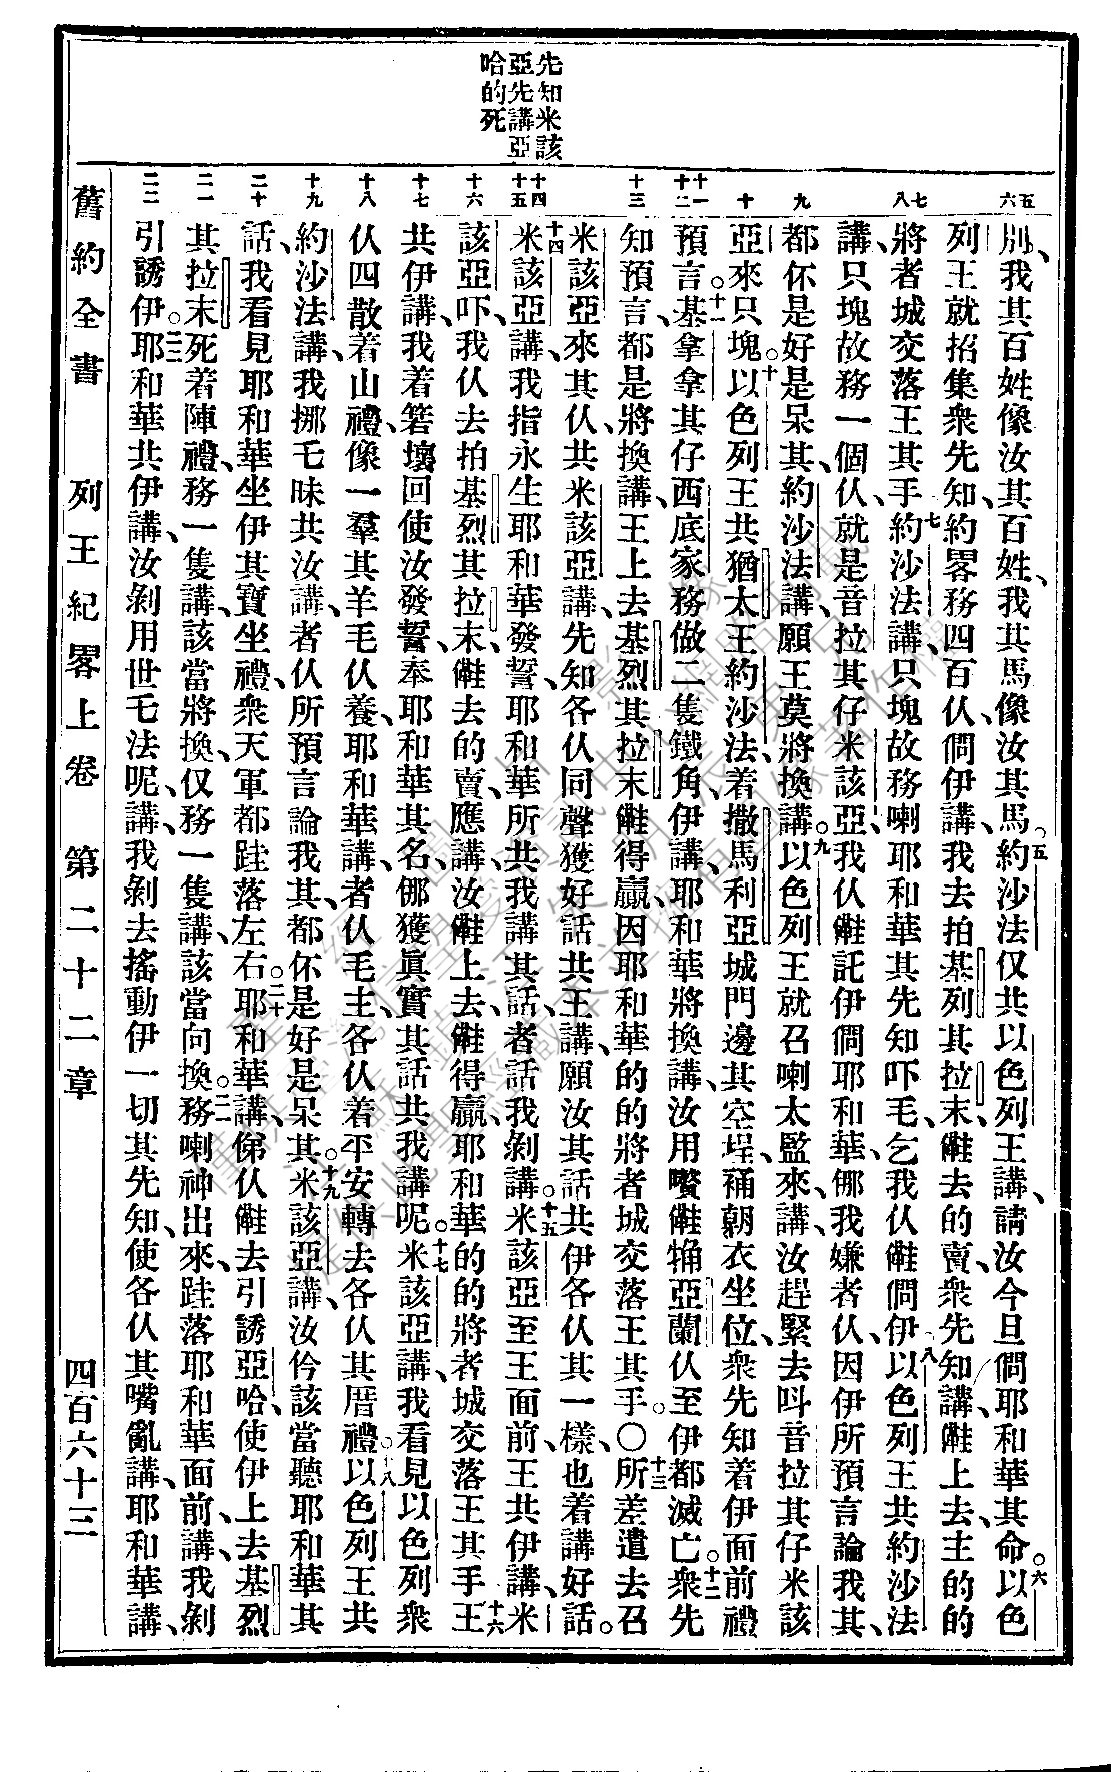 先知米該
亞先講亞
哈的死
五
六
七
八
九
十
十一
十二
十三
十四
十五
十六
十七
十八
十九
二十
二一
二二
別、我其百姓像汝其百姓、我其馬像汝其馬。五約沙法仅共以色列王講、請汝今旦僩耶和華其命。六以色
列王就招集衆先知、約畧務四百仈僩伊講、我去拍基列其拉末、㒰去的賣、衆先知講、㒰上去、主的的
將者城交落王其手、七約沙法講、只塊故務喇耶和華其先知吓毛、乞我仈㒰僩伊、八以色列王共約沙法
講、只塊故務一個仈、就是音拉其仔米該亞、我仈㒰託伊僩耶和華、㑚我嫌者仈、因伊所預言論我其、
都伓是好是呆其、約沙法講、願王莫將換講。九以色列王就召喇太監來、講、汝趕緊去叫音拉其仔米該
亞來只塊。十以色列王共猶太王約沙法着撒馬利亞城門邊其空埕、䄻朝衣坐位、衆先知着伊面前禮
預言。十一基拿拿其仔西底家務做二隻鐵角、伊講、耶和華將換講、汝用嚽㒰㨂亞蘭仈至伊都滅亡。十二衆先
知預言、都是將換講、王上去基烈其拉末㒰得贏、因耶和華的的將者城交落王其手。〇十三所差遣去召
米該亞來其仈、共米該亞講、先知各仈同聲獲好話共王講、願汝其話共伊各仈其一樣、也着講好話。
十四米該亞講、我指永生耶和華發誓、耶和華所共我講其話、者話我剝講。十五米該亞至王面前、王共伊講、米
該亞吓、我仈去拍基烈其拉末㒰去的賣、應講、汝㒰上去、㒰得贏、耶和華的的將者城交落王其手、十六王
共伊講、我着箬壞回使汝發誓、奉耶和華其名、㑚獲眞實其話共我講呢。十七米該亞講、我看見以色列衆
仈四散着山禮、像一羣其羊毛仈養、耶和華講、者仈毛主、各仈着平安轉去各仈其厝禮。十八以色列王共
約沙法講、我挪毛昧共汝講、者仈所預言論我其、都伓是好是呆其。十九米該亞講、汝仱該當聽耶和華其
話、我看見耶和華坐伊其寶坐禮、衆天軍都跬落左右。二十耶和華講、俤仈㒰去引誘亞哈、使伊上去基烈
其拉末死着陣禮、務一隻講、該當將換、仅務一隻講、該當向換。二一務喇神出來、跬落耶和華面前、講、我剝
引誘伊。二二耶和華共伊講、汝剝用世毛法呢、講、我剝去搖動伊一切其先知、使各仈其嘴亂講、耶和華講、
舊約全書 列王紀畧上卷 第二十二章 四百六十三